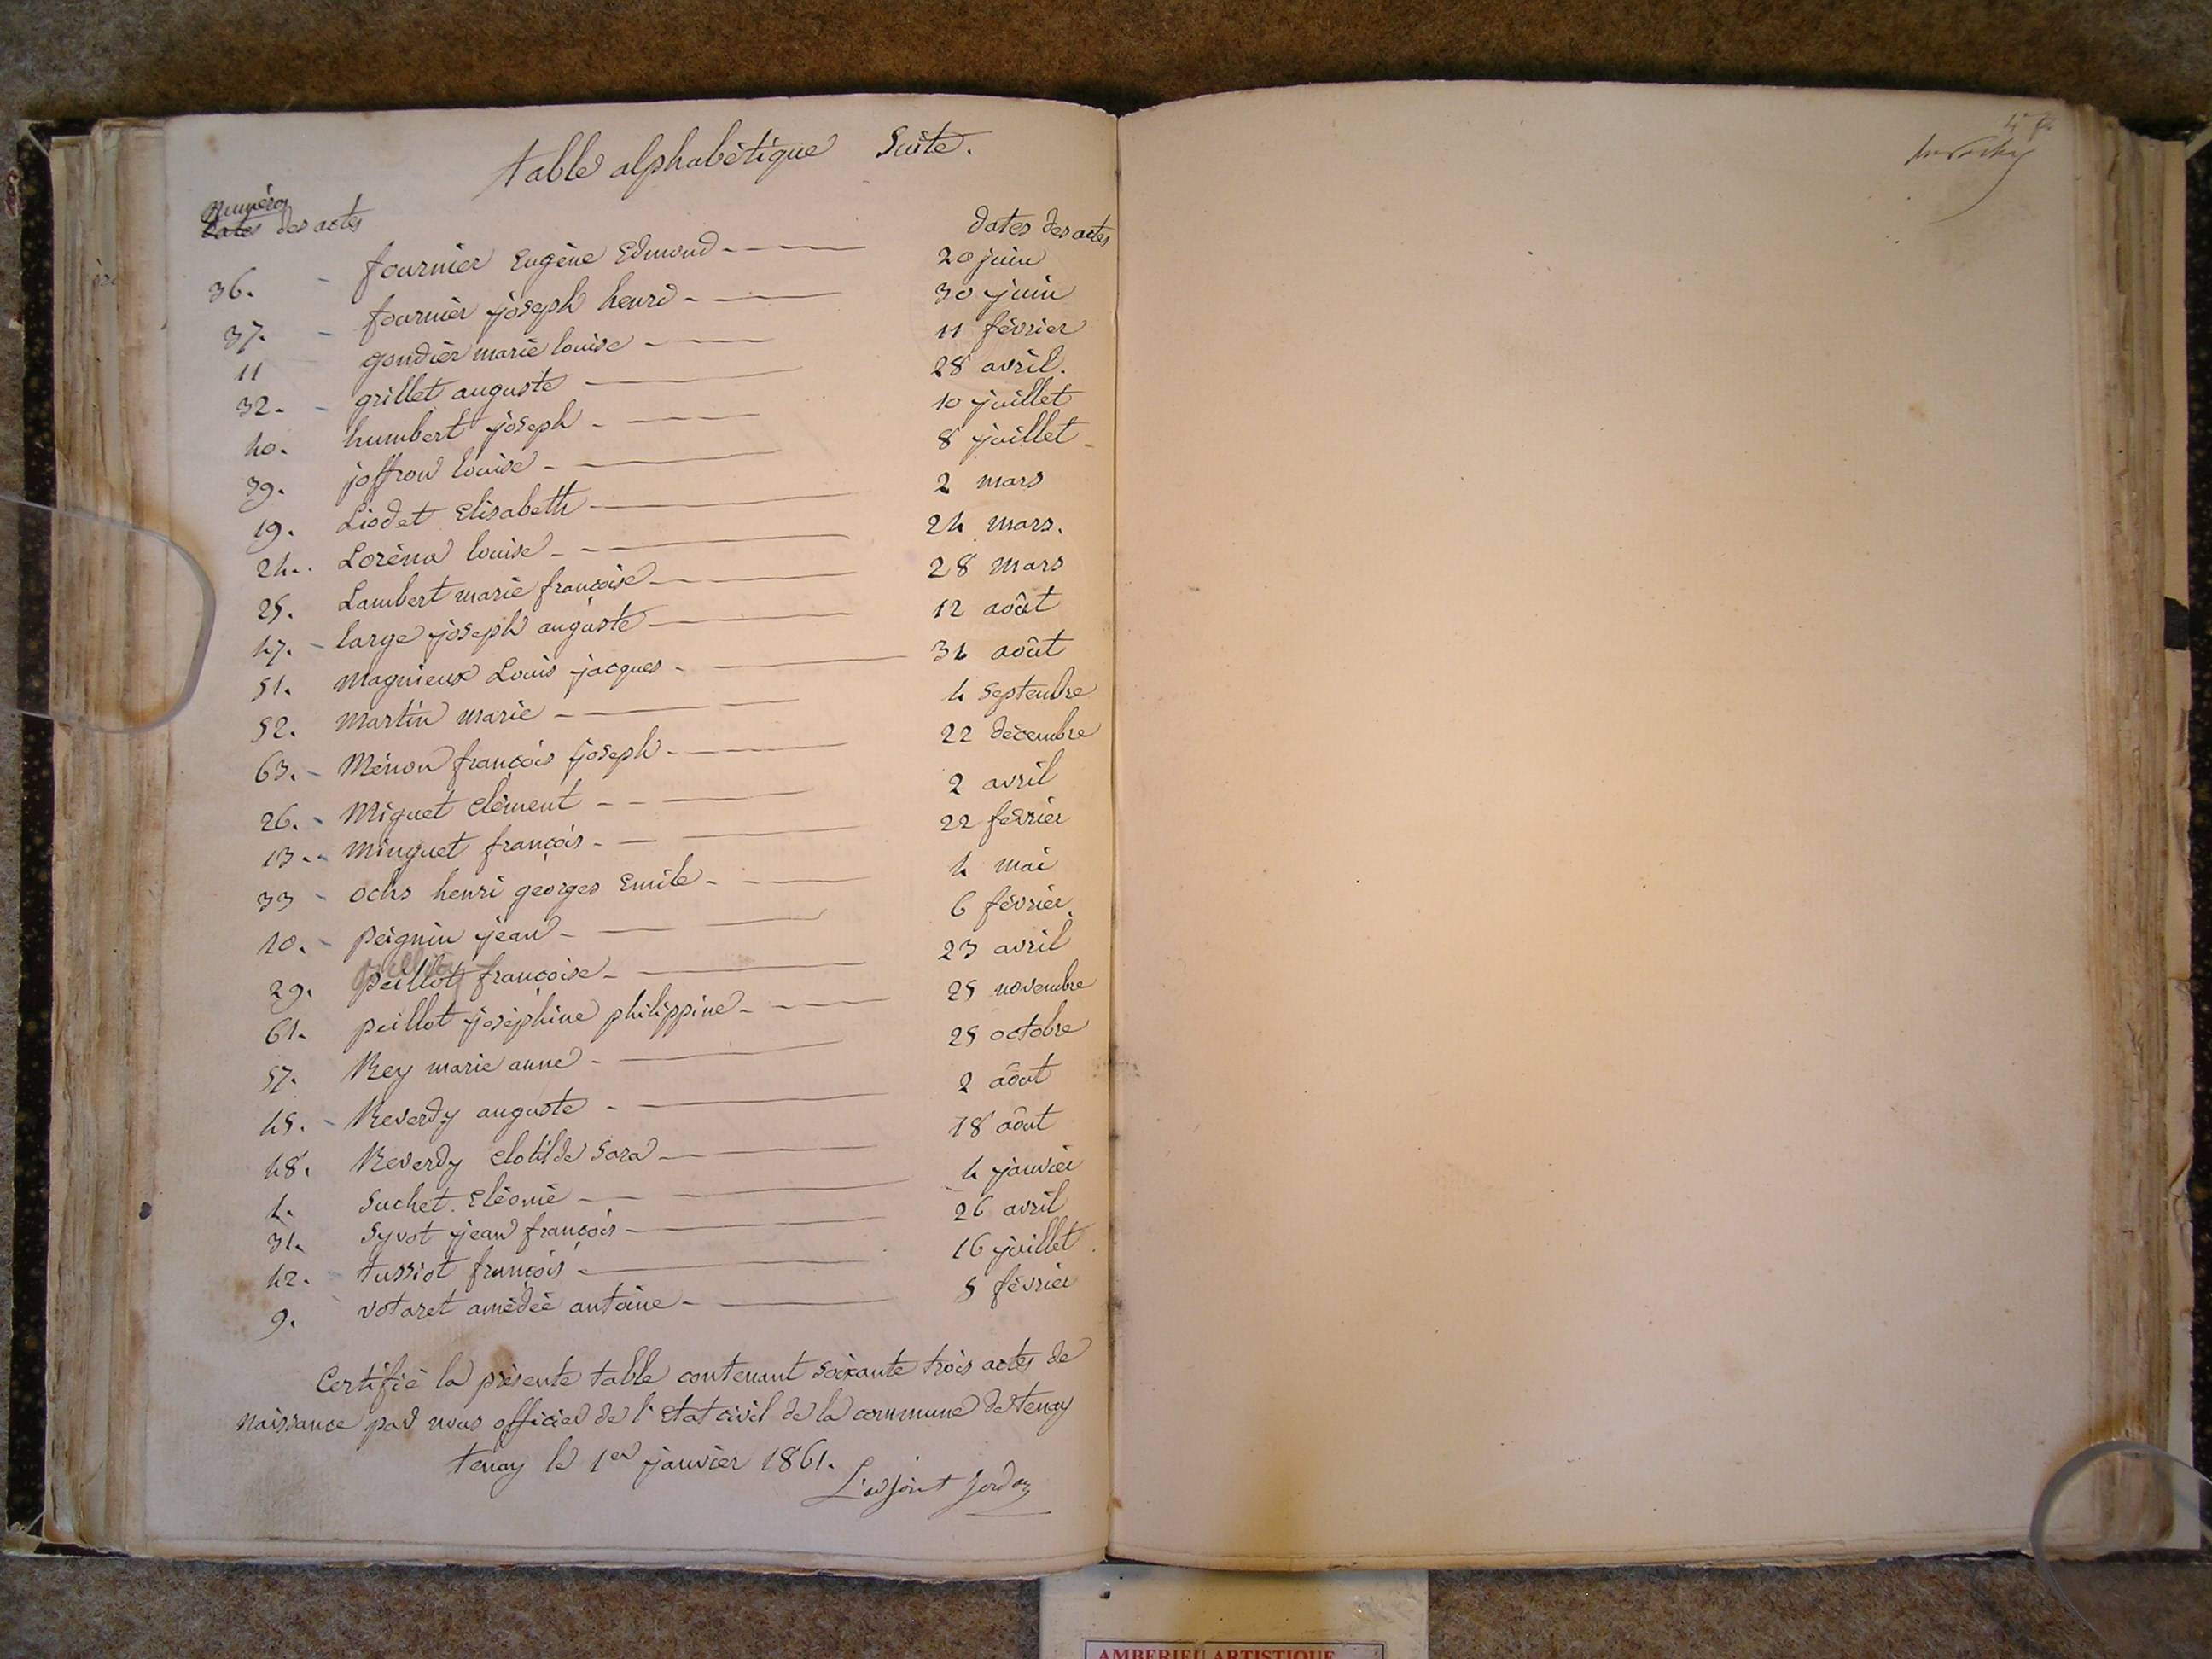 table alphabétique Suite.
Numéros
Dates des actes dates des actes
36. - fournier Eugène Edmond 20 juin
37. - fournier joseph henri 30 juin
11 gondier marie louise 11 février
32. - grillet auguste 28 avril.
40. humbert joseph 10 juillet
39. joffron louise 8 juillet
19. Liodet Elisabeth 2 mars
24. Loréna louise 24 mars.
25. Lambert marie françoise 28 mars
47. - large joseph auguste 12 août
51. Magnieux Louis jacques 31 août
52. Martin marie 4 septembre
63. - Ménon françois joseph 22 décembre
26. - Miguet clément 2 avril
13. - Minguet françois 22 février
33 - ochs henri georges Emile 4 mai
10. - peignin jean 6 février.
29. peillot françoise 23 avril
61. peillot joséphine philippine 25 novembre
57. Rey marie anne 25 octobre
45. - Reverdy auguste 2 août
48. Reverdy clotilde Sara 18 août
1. Suchet Eléonie 4 janvier
31. Syvot jean françois 26 avril
42. - tussiot françois 16 juillet
9. votaret amédée antoine 5 février
Certifié la présente table contenant soixante trois actes de
naissance par nous officier de l'Etat civil de la commune de tenay
tenay le 1er janvier 1861.
L'adjoint Jordan
AMBERIEU ARTISTIQUE